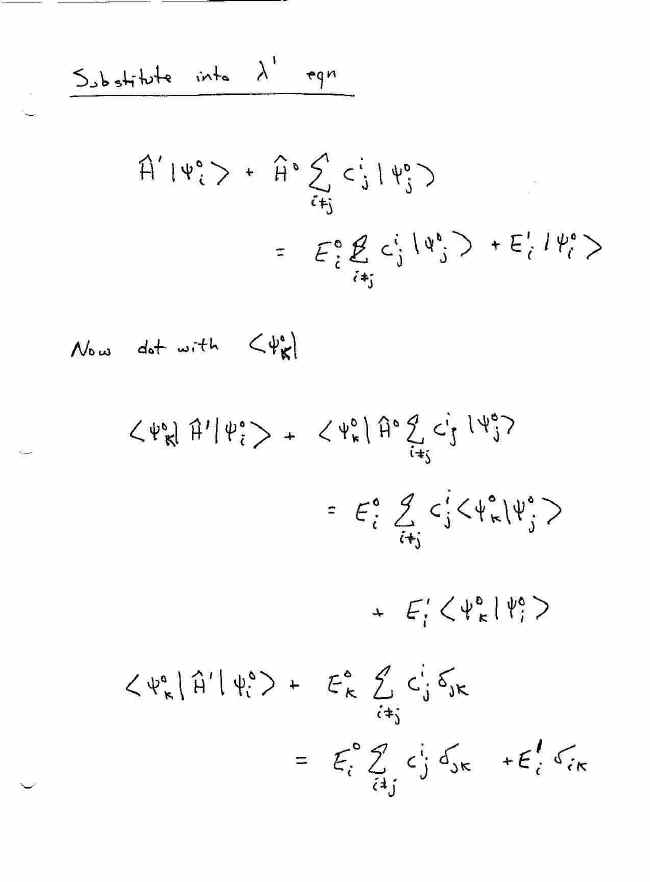 Substitute into λ' eqn
Ĥ'|ψᵢ⁰> + Ĥ⁰ ∑_{i≠j} cⱼⁱ|ψⱼ⁰>
= Eᵢ⁰ ∑_{i≠j} cⱼⁱ|ψⱼ⁰> + Eᵢ'|ψᵢ⁰>
Now dot with <ψ_K⁰|
<ψ_K⁰|Ĥ'|ψᵢ⁰> + <ψ_K⁰|Ĥ⁰ ∑_{i≠j} cⱼⁱ|ψⱼ⁰>
= Eᵢ⁰ ∑_{i≠j} cⱼⁱ<ψ_K⁰|ψⱼ⁰>
+ Eᵢ'<ψ_K⁰|ψᵢ⁰>
<ψ_K⁰|Ĥ'|ψᵢ⁰> + E_K⁰ ∑_{i≠j} cⱼⁱ δ_{jK}
= Eᵢ⁰ ∑_{i≠j} cⱼⁱ δ_{jK} + Eᵢ' δ_{iK}